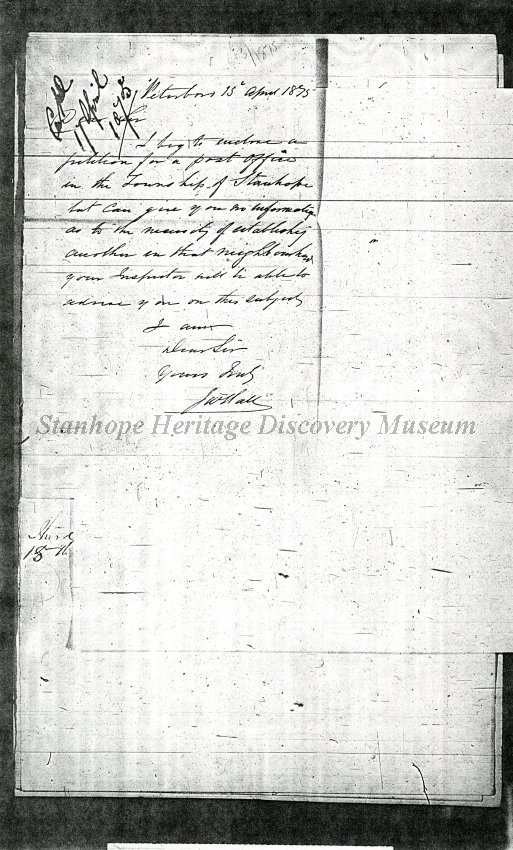 17 April
1875
Peterboro 15 April 1875
Sir
I beg to enclose a
petition for a post office
in the Township of Stanhope
but can give you no information
as to the necessity of establishing
another in that neighbourhood
your Inspector will be able to
advise you on this subject
I am
Dear Sir
Yours truly
Stanhope Heritage Discovery Museum
18th